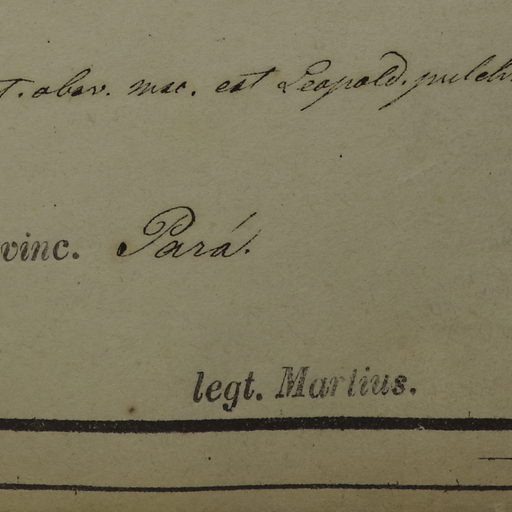 T. obsv. msc. est Leopold. pulchr
vinc. Pará.
legt. Martius.